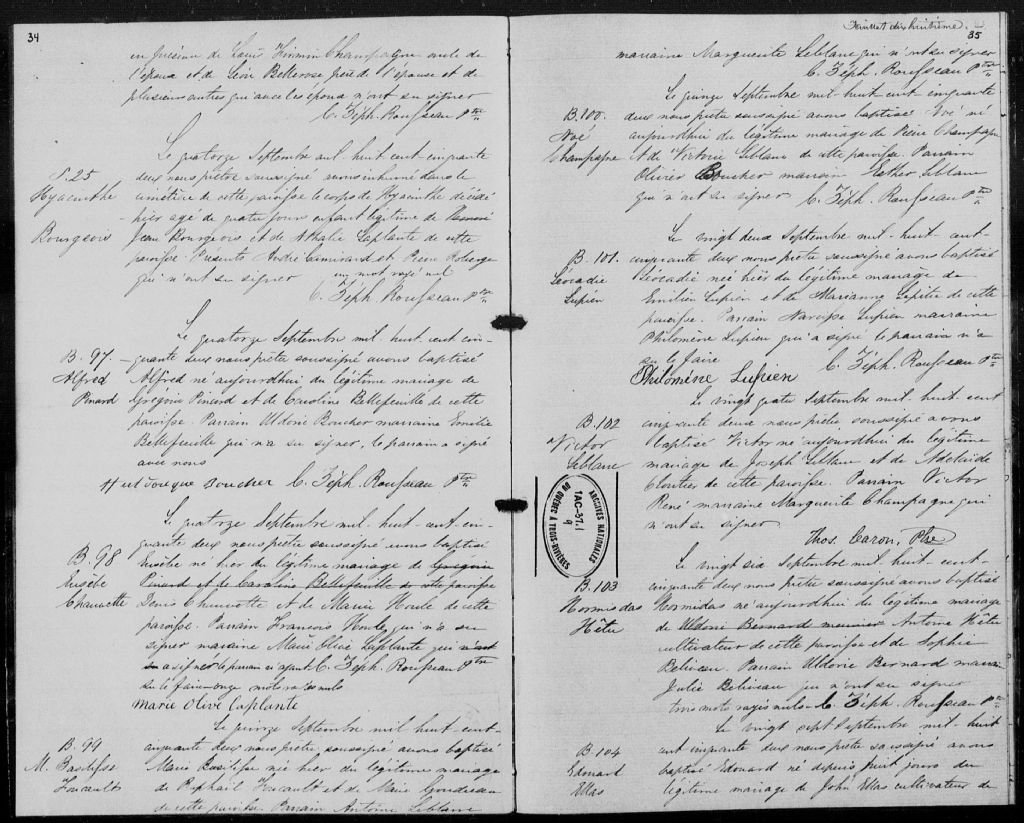 34
en présence de Louis Firmin Champagne oncle de
l'époux et de Léon Bellerose père de l'épouse et de
plusieurs autres qui avec les époux n'ont su signer
C. Zéph. Rousseau Ptre
Le quatorze Septembre mil huit cent cinquante
S. 25
deux nous prêtre soussigné avons inhumé dans le
Hyacinthe
cimétière de cette paroisse le corps de Hyacinthe décédé
hier agé de quatre jours enfant légitime de
Bourgeois
Jean Bourgeois et de Nathalie Laplante de cette
paroisse. Présents André Camirand et Pierre Roberge
qui n'ont su signer un mot rayé nul
C. Zéph. Rousseau Ptre
Le quatorze Septembre mil huit cent cin-
B. 97.
quante deux nous prêtre soussigné avons baptisé
Alfred
Alfred né aujourdhui du légitime mariage de
Pinard
Grégoire Pinard et de Caroline Bellefeuille de cette
paroisse. Parrain Uldoric Boucher marraine Emélie
Bellefeuille qui n'a su signer, le parrain a signé
avec nous
Boucher C. Zéph. Rousseau Ptre
Le quatorze Septembre mil huit cent cin-
quante deux nous prêtre soussigné avons baptisé
B. 98
Eusèbe né hier du légitime mariage de Grégoire
Eusèbe
Pinard et de Caroline Bellefeuille de cette paroisse
Chauvette
Denis Chauvette et de Marie Houle de cette
paroisse. Parrain Francois Houle qui n'a su
signer maraine Marie Olive Laplante qui n'ont
su a signé le parrain n'ayant C. Zéph. Rousseau Ptre
su le faire onze mots rayés nuls
Marie Olive Laplante
Le quinze Septembre mil huit cent
B. 99
cinquante deux nous prêtre soussigné avons baptisé
M. Basilisse
Marie Basilisse née hier du légitime mariage
Foucault
de Raphaël Foucault et de Marie Goudreau
de cette paroisse. Parrain Antoine Leblanc
Feuillet dix huitième.
35
marraine Marguerite Leblanc qui n'ont su signer
C. Zéph. Rousseau Ptre
Le quinze Septembre mil huit cent cinquante
B. 100.
deux nous prêtre soussigné avons baptisé Noé né
Noé
aujourdhui du légitime mariage de Pierre Champagne
Champagne
et de Victoire Leblanc de cette paroisse. Parrain
Olivier Boucher marraine Esther Leblanc
qui n'ont su signer C. Zéph. Rousseau Ptre
Le vingt deux Septembre mil huit cent
B. 101.
cinquante deux nous prêtre soussigné avons baptisé
Léocadie
Léocadie née hier du légitime mariage de
Lupien
Emilien Lupien et de Marianne Lépitre de cette
paroisse. Parrain Narcisse Lupien marraine
Philomène Lupien qui a signé le parrain n'a
su le faire C. Zéph. Rousseau Ptre
Philomène Lupien
Le vingt quatre Septembre mil huit cent
B. 102
cinquante deux nous prêtre soussigné avons
Victor
baptisé Victor né aujourdhui du légitime
Leblanc
mariage de Joseph Leblanc et de Adelaide
Cloutier de cette paroisse. Parrain Victor
René marraine Marguerite Champagne qui
n'ont su signer
Thos. Caron, Ptre
ARCHIVES NATIONALES
1AC-37.1
9
DU QUÉBEC À TROIS-RIVIÈRES
Le vingt six Septembre mil huit cent
B. 103
cinquante deux nous prêtre soussigné avons baptisé
Hormisdas
Hormidas né aujourdhui du légitime mariage
Hêtu
de Uldoric Bernard meunier Antoine Hêtu
cultivateur de cette paroisse et de Sophie
Beliveau. Parrain Uldoric Bernard marraine
Julie Beliveau qui n'ont su signer
trois mots rayés nuls C. Zéph. Rousseau Ptre
Le vingt sept Septembre mil huit
B. 104
cent cinquante deux nous prêtre soussigné avons
Edouard
baptisé Edouard né depuis huit jours du
légitime mariage de John cultivateur de